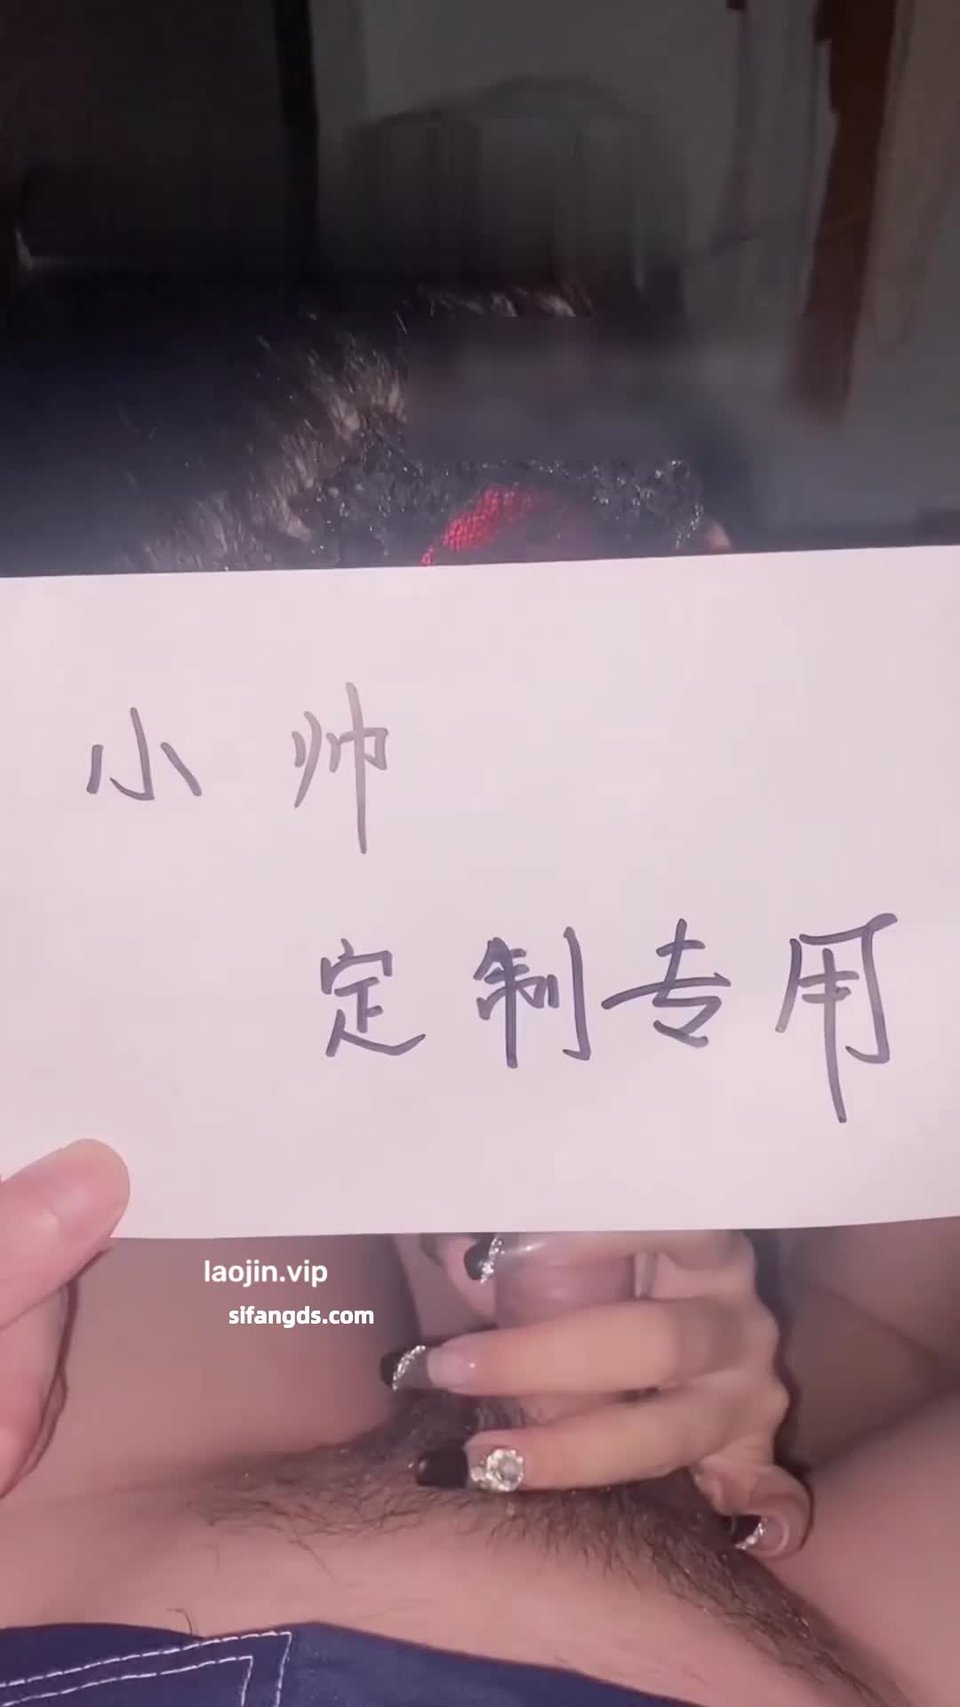 小帅
定制专用
laojin.vip
sifangds.com